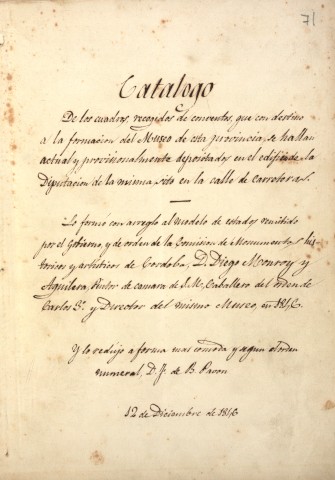 71
Catálogo
De los cuadros, recogidos de conventos, que con destino
a la formacion del Museo de esta provincia, se hallan
actual y provisionalmente depositados en el edificio de la
Diputacion de la misma sito en la calle de Carreteras.
Lo formó con arreglo al modelo de estados remitido
por el gobierno, y de orden de la Comision de Monumentos his-
toricos y artisticos de Cordoba, D. Diego Monroy y
Aguilera, Pintor de camara de S. M. Caballero del orden de
Carlos 3º. y Director del mismo Museo, en 1846.
Y lo redujo a forma mas comoda y segun el orden
numeral, D. F. de B. Pavon
12 de Diciembre de 1846